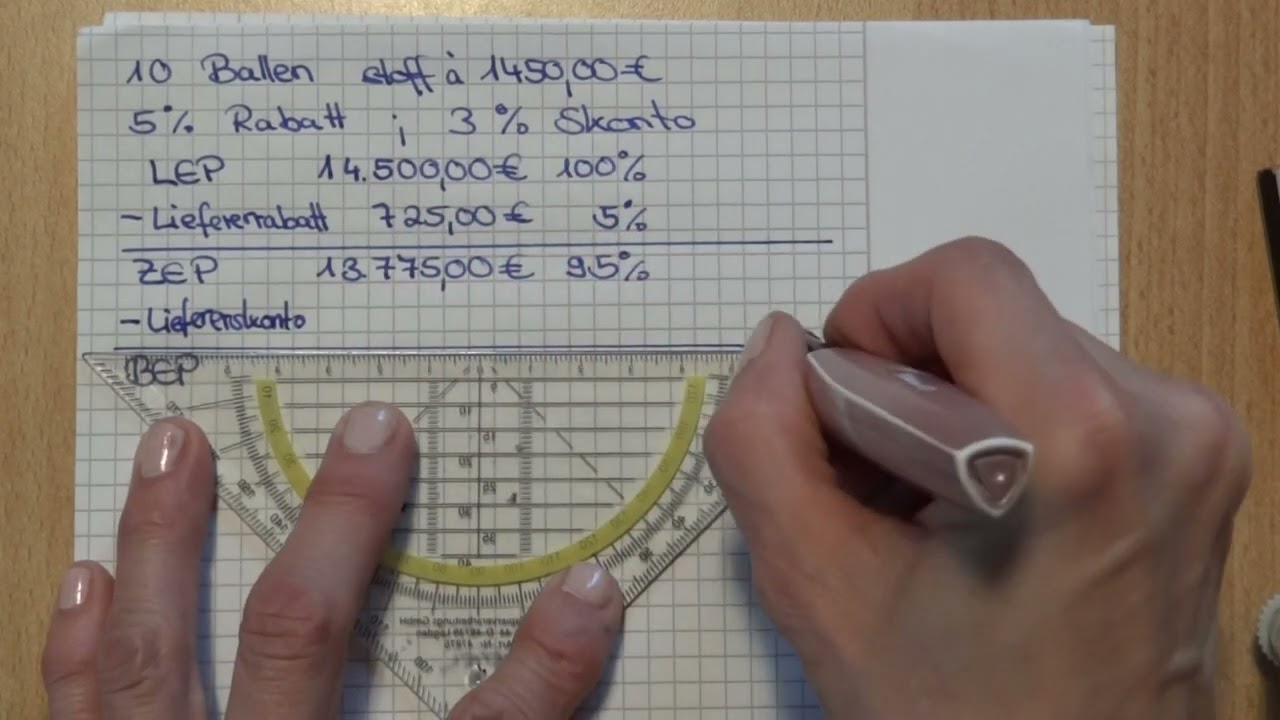 10 Ballen stoff à 1450,00€
5% Rabatt ; 3% Skonto
LEP 14.500,00€ 100%
- Lieferenrabatt 725,00€ 5%
ZEP 13.775,00€ 95%
- Liefererskonto
BEP